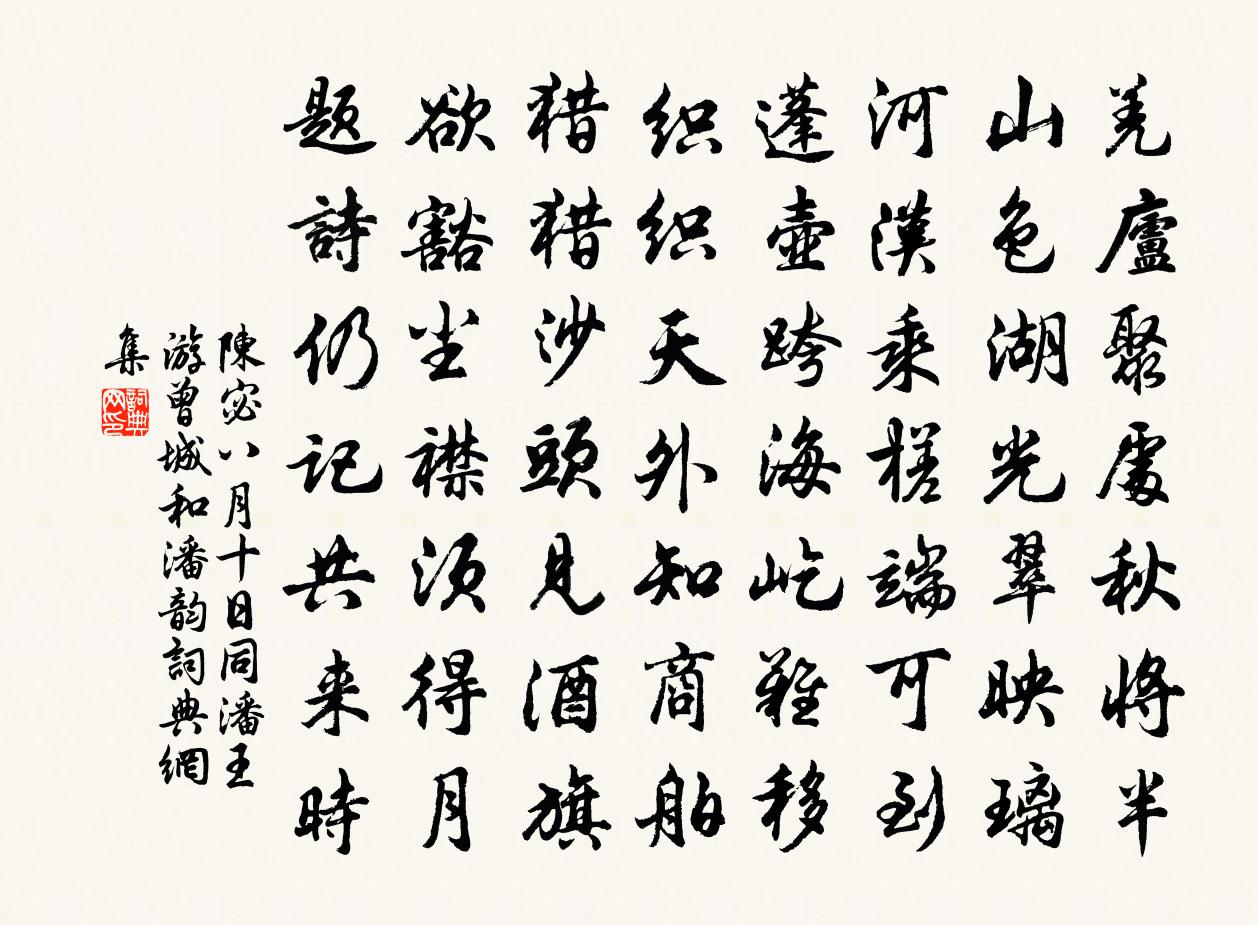 羌廬聚處秋將半
山色湖光翠映璃
河漢乘槎端可到
蓬壺跨海屹難移
织织天外知商舶
猎猎沙頭見酒旗
欲豁尘襟须得月
题詩仍记共来時
陳宓八月十日同潘王
游曾城和潘韵詞典網
集
詞典网印